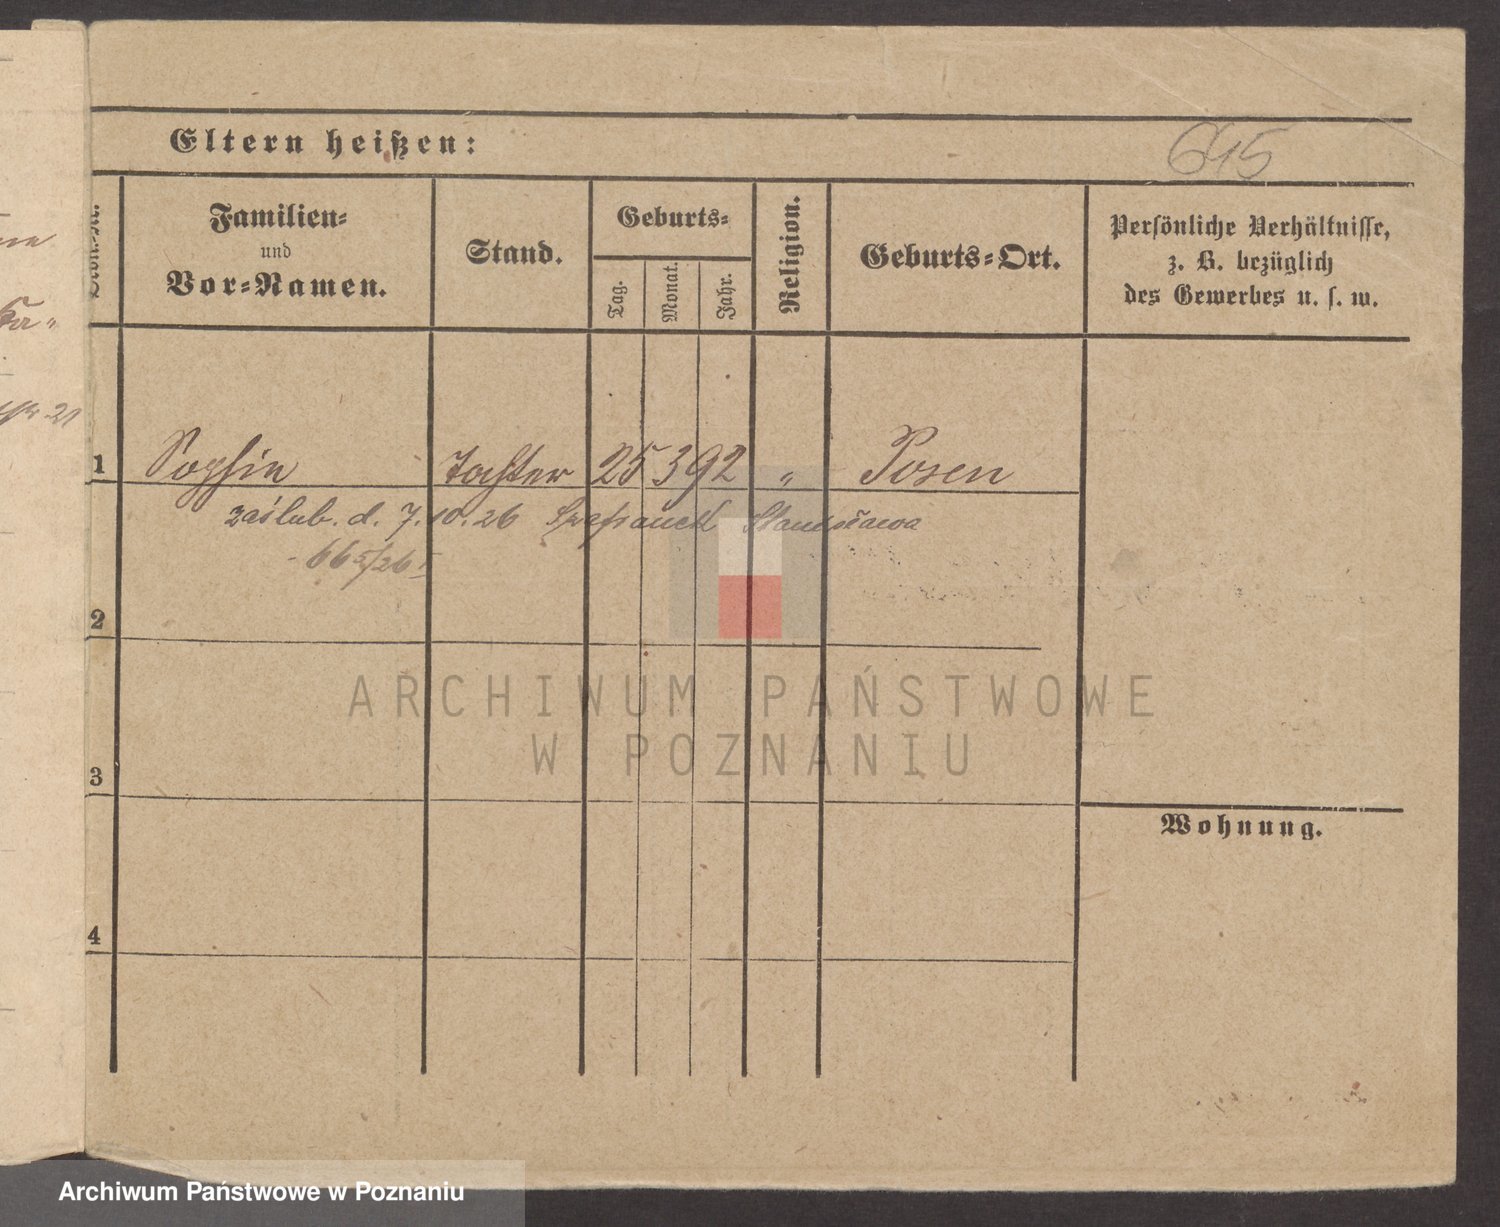 Eltern heißen:
645
Familien-
und
Vor-Namen.
Stand.
Geburts-
Tag.
Monat.
Jahr.
Religion.
Geburts-Ort.
Persönliche Verhältnisse,
z. B. bezüglich
des Gewerbes u. s. w.
1 Sophie Tochter 25 3 92 " Posen
zaślub. d. 7.10.26 Stanisława
665/26
2
3
Wohnung.
4
ARCHIWUM PAŃSTWOWE
W POZNANIU
Archiwum Państwowe w Poznaniu